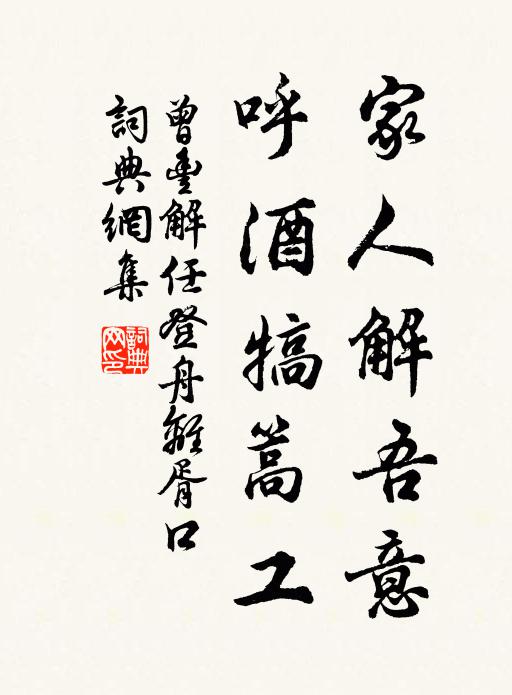 家人解吾意
呼酒犒篙工
曾豐解任登舟離胥口
詞典網集
詞典網印